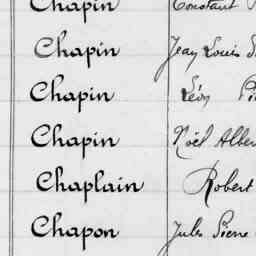 Chapin Constant
Chapin Jean Louis
Chapin Léon
Chapin Noël Alber
Chaplain Robert
Chapon Jules Pierre